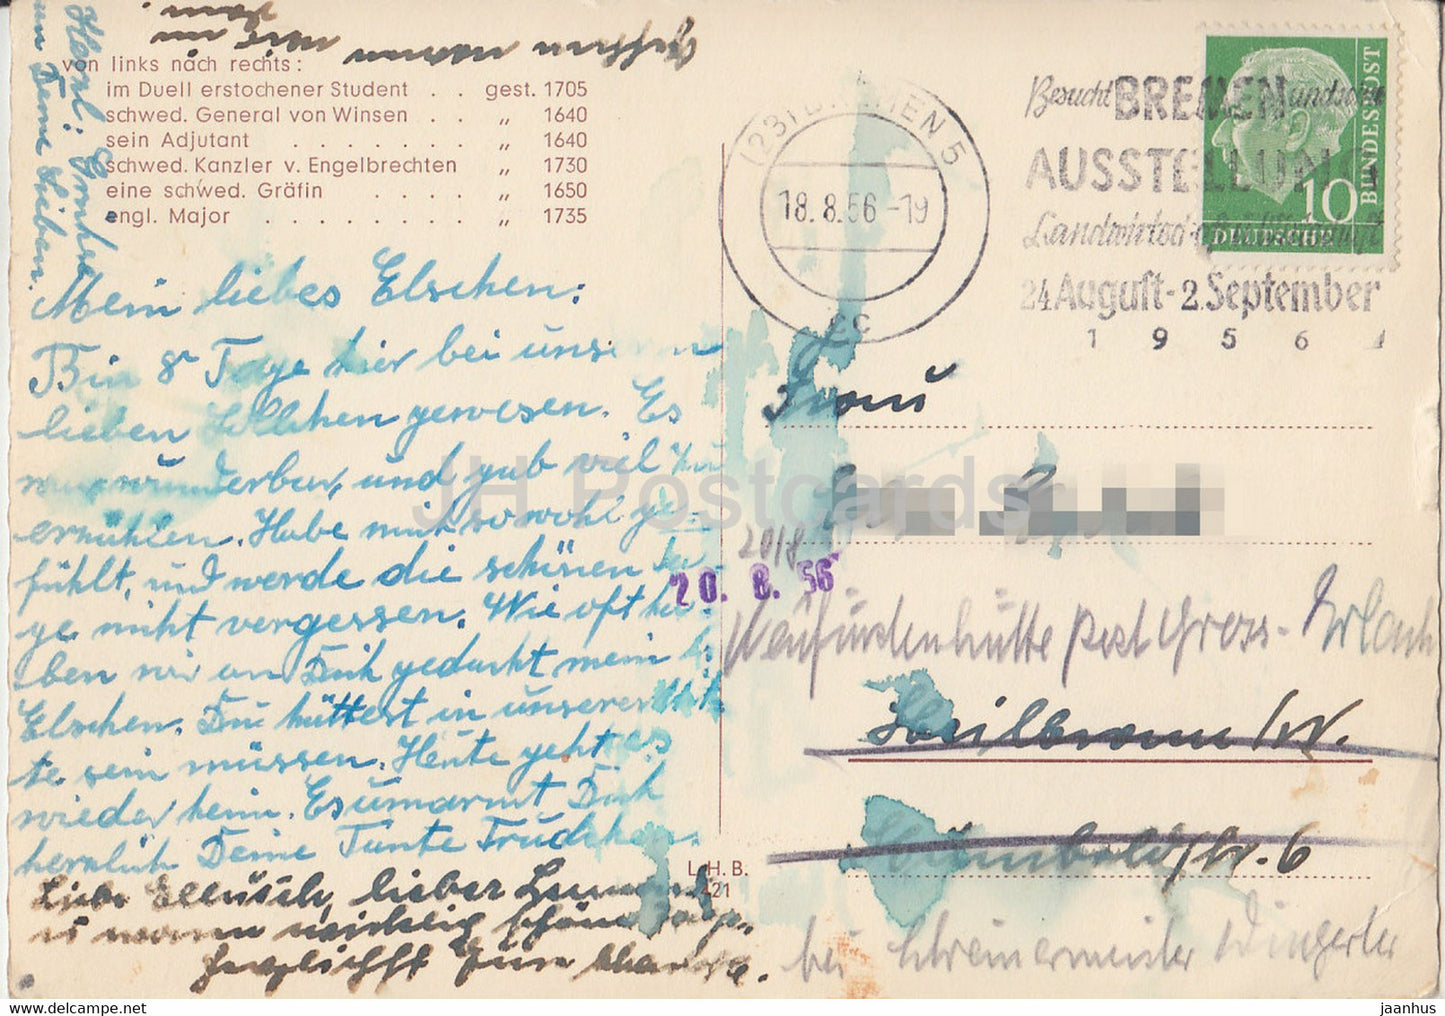 von links nach rechts:
im Duell erstochener Student . . gest. 1705
schwed. General von Winsen . . „ 1640
sein Adjutant . . . . . . . „ 1640
schwed. Kanzler v. Engelbrechten „ 1730
eine schwed. Gräfin . . . . „ 1650
engl. Major . . . . . . . „ 1735
Mein liebes Elschen:
Bin 8 Tage hier bei unserm
lieben gewesen. Es
war wunderbar, und gab viel zu
erzählen. Habe mich so wohl ge-
fühlt, und werde die schönen Ta-
ge nicht vergessen. Wie oft ha-
ben wir an Dich gedacht mein
Elschen. Du hättest in unserer Mit-
te sein müssen. Heute geht es
wieder heim. Es umarmt Dich
herzlich Deine Tante Trudchen.
Liebe lieber
wirklich schöne Tage.
L.H.B.
421
(23) BREMEN 5
18.8.56-19
cc
Besucht BREMEN und seine
AUSSTELLUNG
Landwirtschaft
24 August - 2. September
1956
DEUTSCHE
BUNDESPOST
10
Frau
20/8
20. 8. 56
Neufürstenhütte Post Gross-Erlach
Heilbronn/W.
Humboldstr. 6
bei Schreinermeister Wingerter
JH Postcards
jaanhus © www.delcampe.net